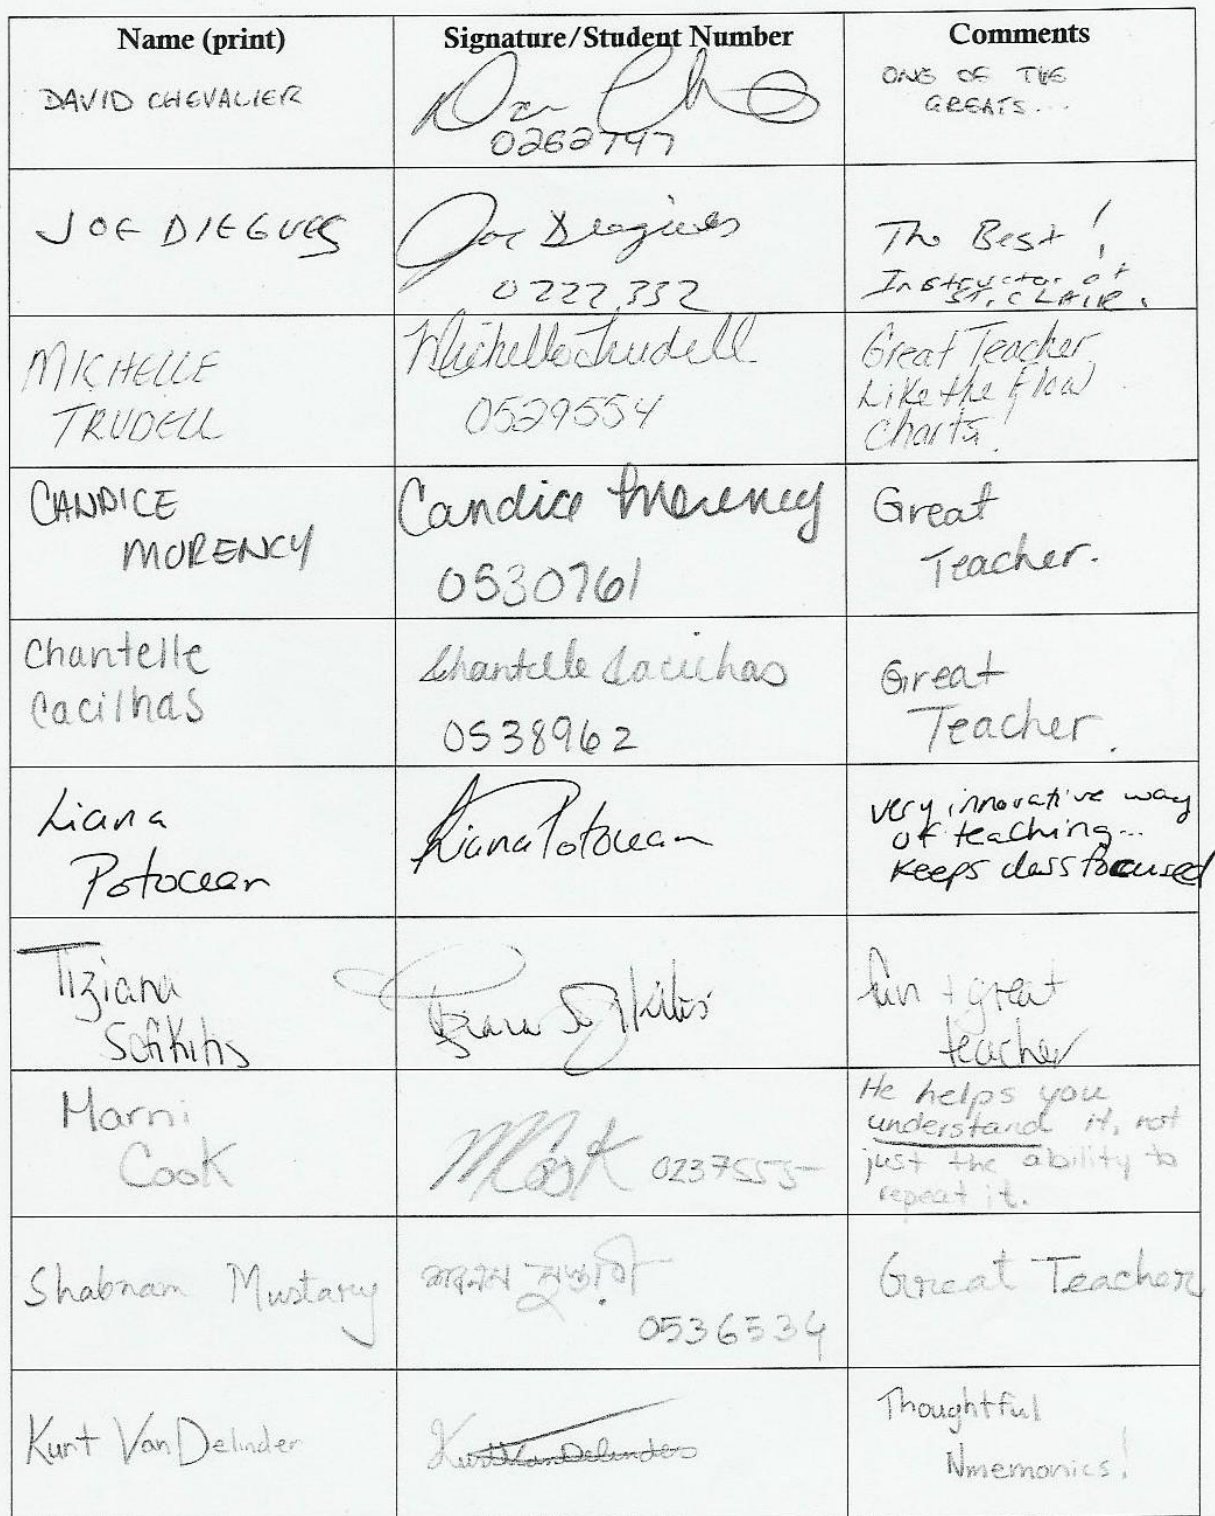 Name (print) Signature/Student Number Comments
DAVID CHEVALIER
0262797
ONE OF THE
GREATS...
JOE DIEGUES
Joe Diegues
0222332
The Best!
Instructor at
ST. CLAIR.
MICHELLE
TRUDELL
Michelle Trudell
0529554
Great Teacher
Like the Flow
Charts!
CANDICE
MORENCY
Candice Morency
0530761
Great
Teacher.
Chantelle
Cacilhas
Chantelle Cacilhas
0538962
Great
Teacher.
Liana
Potocean
Liana Potocean
very innovative way
of teaching...
keeps class focused
Tiziana
Sofikitis
Tiziana Sofikitis
fun + great
teacher
Marni
Cook
MCook 0237555
He helps you
understand it, not
just the ability to
repeat it.
Shabnam Mustary
শবনম মুস্তারী
0536534
Great Teacher
Kurt VanDelinder
Kurt VanDelinder
Thoughtful
Nmemonics!